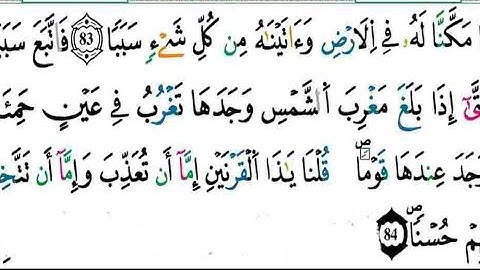 مَكَّنَّا لَهُۥ فِے اِ۬لَارْضِ وَءَاتَيْنَٰهُ مِن كُلِّ شَےْءٖ سَبَباٗ 83 فَاتَّبَعَ سَبَ
تَّىٰٓ إِذَا بَلَغَ مَغْرِبَ اَ۬لشَّمْسِ وَجَدَهَا تَغْرُبُ فِے عَيْنٍ حَمِئَ
وَجَدَ عِندَهَا قَوْماٗۖ قُلْنَا يَٰذَا اَ۬لْقَرْنَيْنِ إِمَّآ أَن تُعَذِّبَ وَإِمَّآ أَن تَتَّخِ
هِمْ حُسْناٗۖ 84